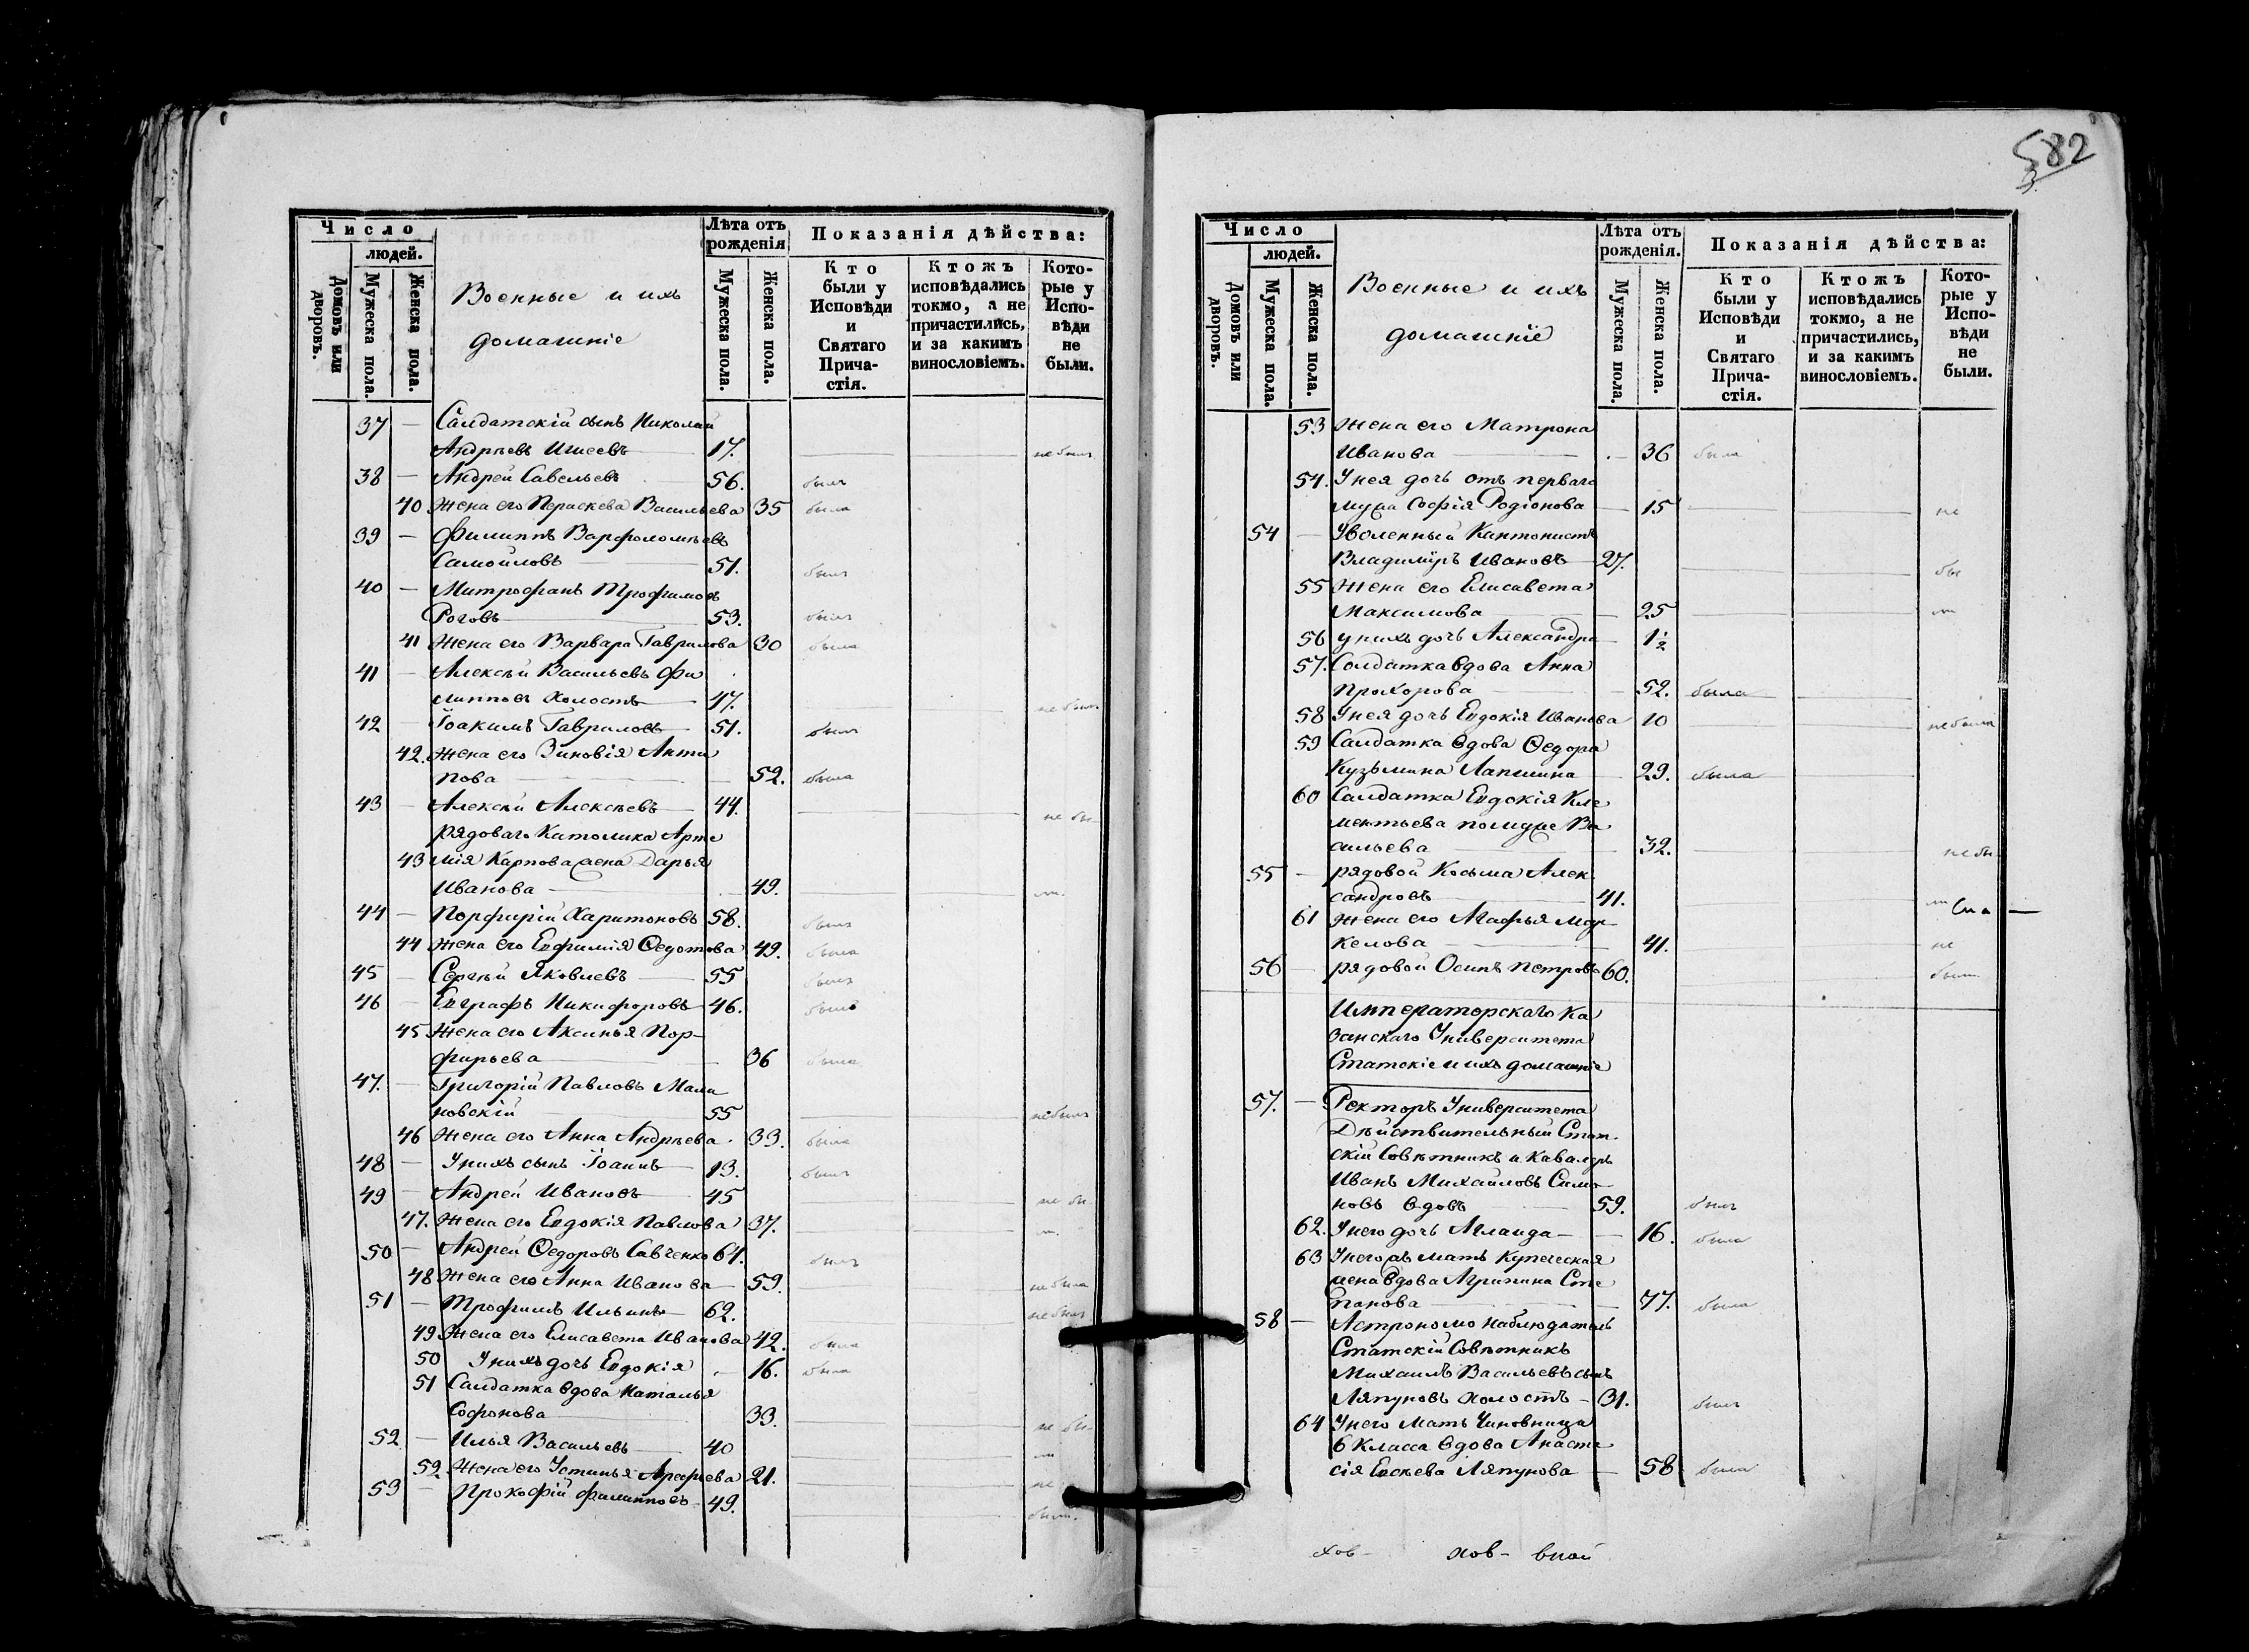 Число
людей.
Домовъ или дворовъ.
Мужеска пола.
Женска пола.
Военные и ихъ
домашніе
Лѣта отъ рожденія
Мужеска пола.
Женска пола.
Показанія дѣйства:
Кто были у Исповѣди и Святаго Прича- стія.
Ктожъ исповѣдались токмо, а не причастились, и за какимъ винословіемъ.
Кото- рые у Испо- вѣди не были.
37 — Салдатскій сынъ Николай
Андреевъ 17. не былъ
38 — Андрей Савельевъ 56. былъ
40 Жена его Параскева Васильева 35 была
39 — Филиппъ Варфоломѣевъ
Самойловъ 51. былъ
40 — Митрофанъ Трофимовъ
Роговъ 53. былъ
41 Жена его Варвара Гаврилова 30 была
41 — Алексѣй Васильевъ Фи
липповъ холостъ 47. не былъ
42 — Іоакимъ Гавриловъ 51. былъ
42. Жена его Зиновія Анти
пова — 52. была
43 — Алексѣй Алексѣевъ 44. не бы
рядоваго Католика Арте
43 мія Карпова жена Дарья
Иванова — 49.
44 — Порфирій Харитоновъ 58. былъ
44 Жена его Евфимія Ѳедотова 49. была
45 — Сергѣй Яковлевъ 55 былъ
46 — Евграфъ Никифоровъ 46. былъ
45 Жена его Аксинья Пор-
фирьева — 36 была
47. — Григорій Павловъ Мали
новскій 55 не былъ
46 Жена его Анна Андреева. 33. была
48 — У нихъ сынъ Іоаннъ 13. былъ
49 — Андрей Ивановъ 45 не бы
47. Жена его Евдокія Павлова 37.
50 — Андрей Ѳедоровъ Савченко 64. былъ
48 Жена его Анна Иванова 59. не была
51 — Трофимъ Ильинъ 62. не былъ
49 Жена его Елисавета Иванова 42. была
50 У нихъ дочь Евдокія — 16. была
51 Салдатка вдова Наталья
Софонова 33. не бы
52 — Илья Васильевъ 40
52. Жена его Устинья Арефьева 21. не
53 — Прокофій Филипповъ 49. былъ.
582
Число
людей.
Домовъ или дворовъ.
Мужеска пола.
Женска пола.
Военные и ихъ
домашніе
Лѣта отъ рожденія.
Мужеска пола.
Женска пола.
Показанія дѣйства:
Кто были у Исповѣди и Святаго Прича- стія.
Ктожъ исповѣдались токмо, а не причастились, и за какимъ винословіемъ.
Кото- рые у Испо- вѣди не были.
53 Жена его Матрона
Иванова — 36 была
54. У нея дочь отъ перваго
мужа Софія Родіонова — 15 не
54 — Уволенный Кантонистъ
Владиміръ Ивановъ 27. бы
55 Жена его Елисавета
Максимова — 25
56 у нихъ дочь Александра — 1½
57. Солдатка вдова Анна
Прохорова — 52. была
58 У нея дочь Евдокія Иванова 10 не была
59 Салдатка вдова Ѳедора
Кузьмина Лапшина — 29. была
60 Салдатка Евдокія Кле
ментьева по мужѣ Ва
сильева — 32. не бы
55 — рядовой Косьма Алек
сандровъ 41.
61 Жена его Агафья Мар
келова — 41. не
56 — рядовой Осипъ Петровъ 60. был
Императорскаго Ка
занскаго Университета
Статскіе и ихъ домашніе
57. — Ректоръ Университета
Дѣйствительный Стат.
скій Совѣтникъ и Кавалеръ
Иванъ Михайловъ Симо
новъ вдовъ 59. былъ
62. У него дочь Аглаида — 16. была
63 У него жъ мать Купеческая
жена вдова Агрипина Сте
панова — 77. была
58 — Астрономъ наблюдатель
Статскій Совѣтникъ
Михаилъ Васильевъ сынъ
Ляпуновъ холостъ — 31. былъ
64 У него Мать Чиновница
6 Класса вдова Анаста
сія Евсѣева Ляпунова — 58 была
хов- нов- вной